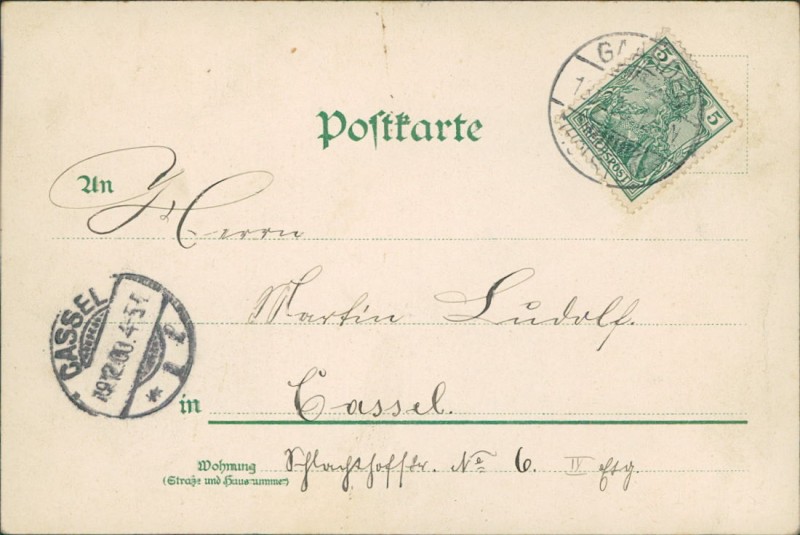 Postkarte
5 5
REICHSPOST
An Herrn
Martin Ludolf.
CASSEL
19.12.00. 4-5N.
* 1
in Cassel.
Wohnung Schlachthofstr. No 6. IV Etg.
(Straße und Hausnummer)